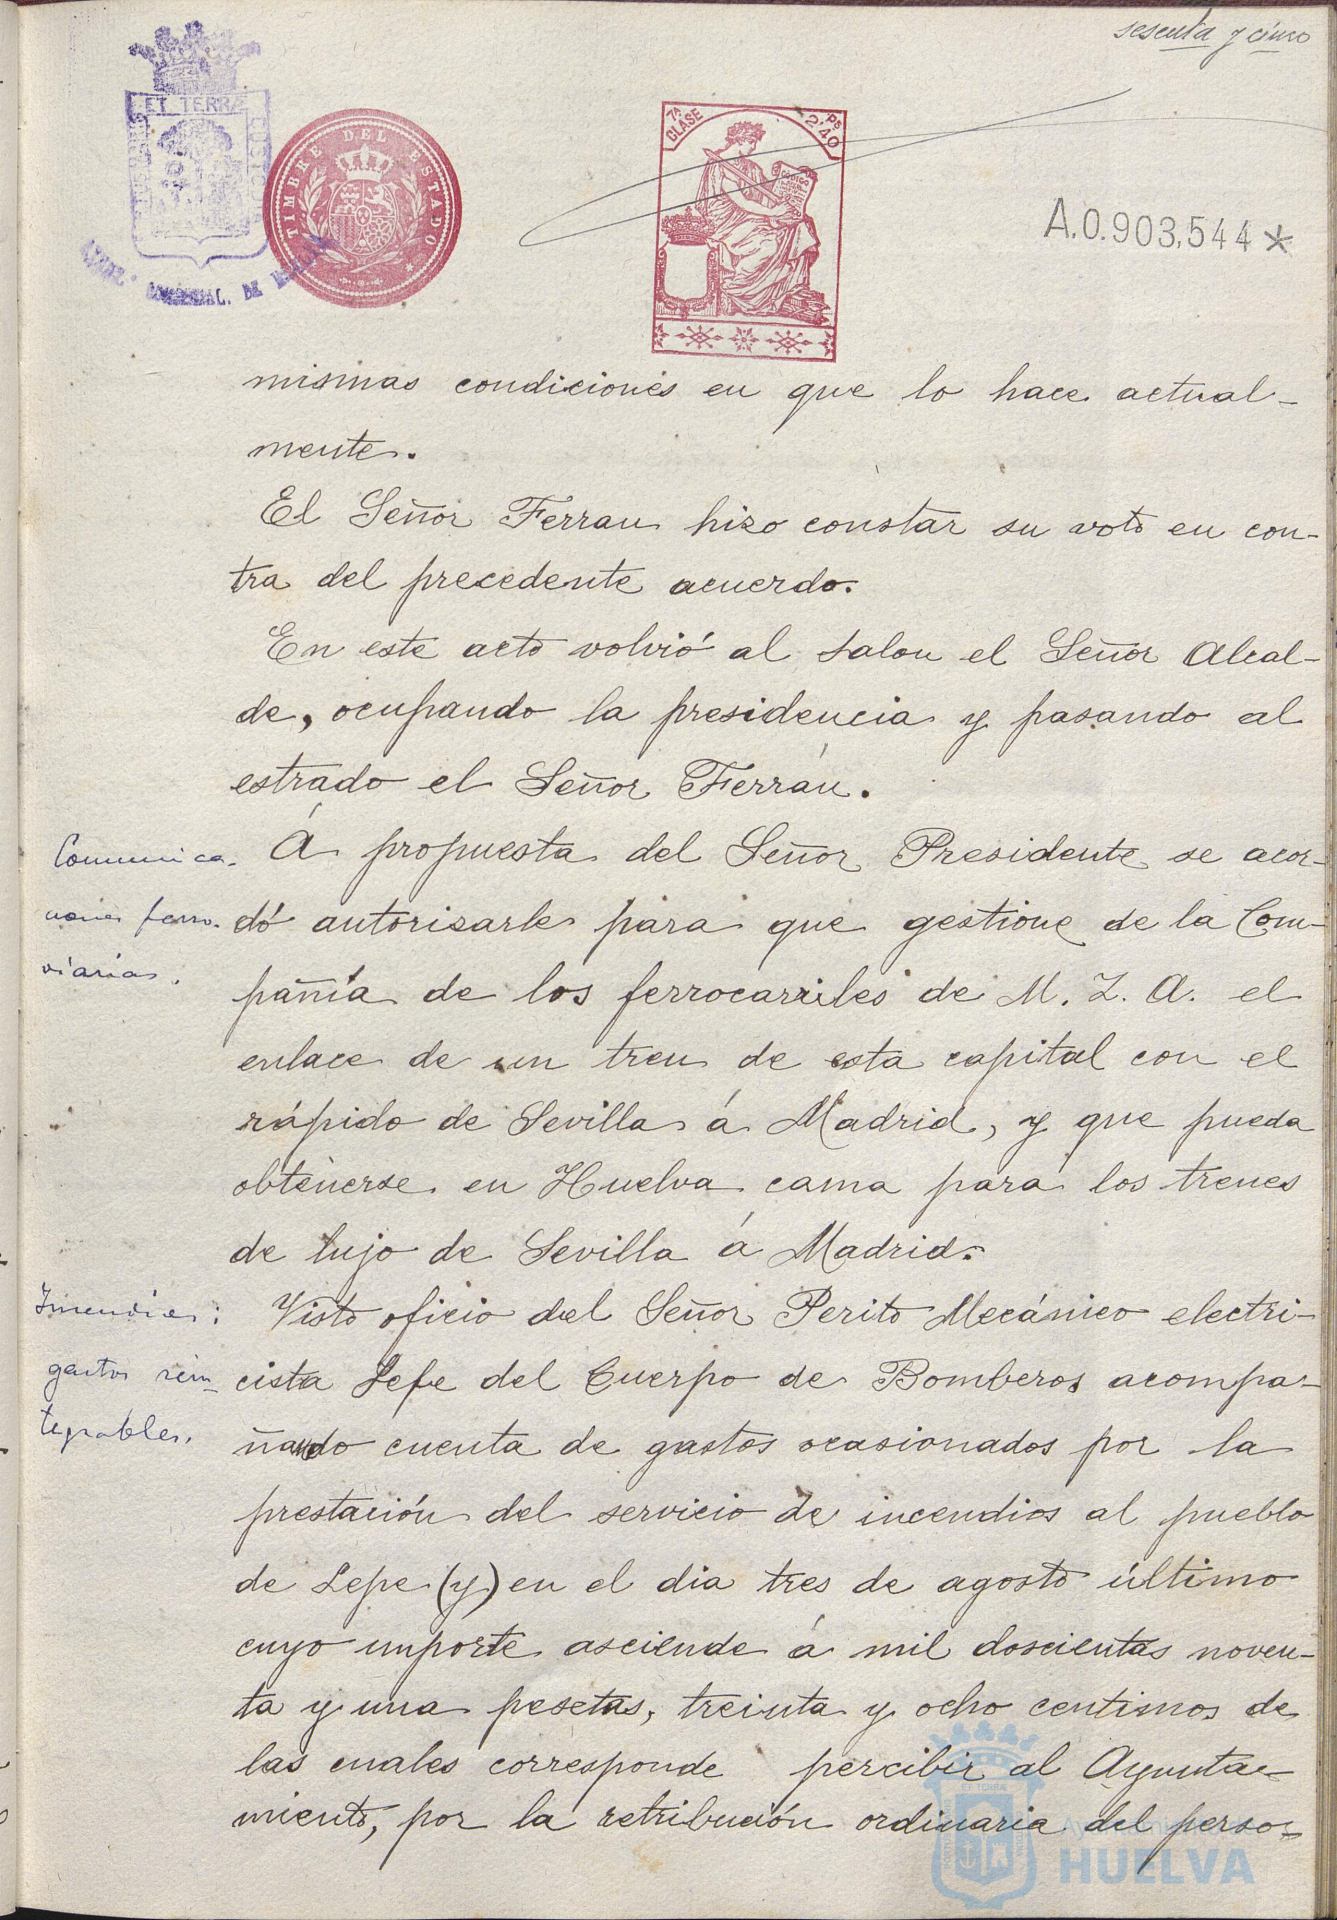 sesenta y cinco
ET TERRÆ
TIMBRE DEL ESTADO
7ª CLASE
Ps 2'40
CODIGO
A.0.903,544*
mismas condiciones en que lo hace actual-
mente.
El Señor Ferran hizo constar su voto en con-
tra del precedente acuerdo.
En este acto volvió al salon el Señor Alcal-
de, ocupando la presidencia y pasando al
estrado el Señor Ferrán.
Comunica-
ciones ferro-
viarias.
Á propuesta del Señor Presidente se acor-
dó autorizarle para que gestione de la Com-
pañía de los ferrocarriles de M. Z. A. el
enlace de un tren de esta capital con el
rápido de Sevilla á Madrid, y que pueda
obtenerse en Huelva cama para los trenes
de lujo de Sevilla á Madrid.
Incendios:
gastos rein-
tegrables.
Visto oficio del Señor Perito Mecánico electri-
cista Jefe del Cuerpo de Bomberos acompa-
ñando cuenta de gastos ocasionados por la
prestación del servicio de incendios al pueblo
de Lepe (y) en el dia tres de agosto último
cuyo importe asciende á mil doscientas noven-
ta y una pesetas, treinta y ocho centimos de
las cuales corresponde percibir al Ayunta-
miento, por la retribución ordinaria del perso-
Ayuntamiento
HUELVA